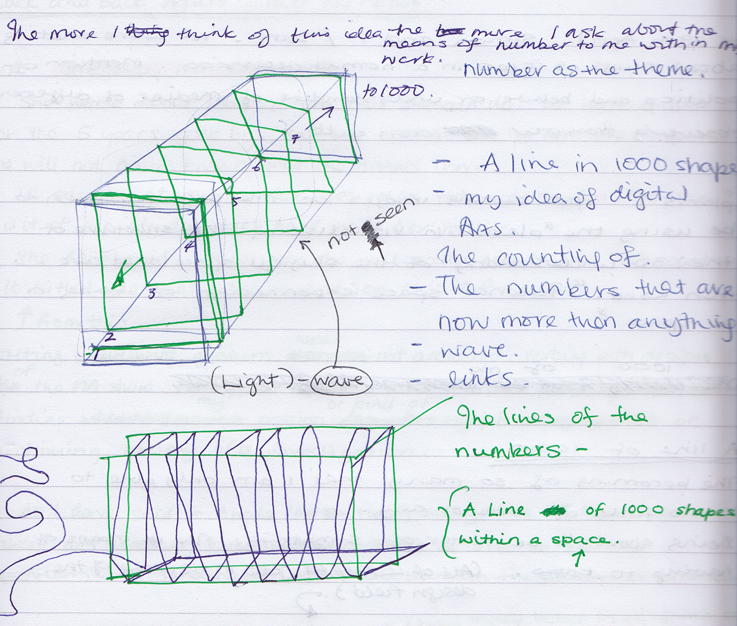 The more I think of this idea the more I ask about the
means of number to me within m
work.
number as the theme.
to 1000.
- A line in 1000 shape
- my idea of digital
Arts.
The counting of.
- The numbers that are
now more then anything
- wave.
- links.
not seen
(Light) - wave
1
2
3
4
5
6
7
The lines of the
numbers -
A Line of 1000 shapes
within a space.